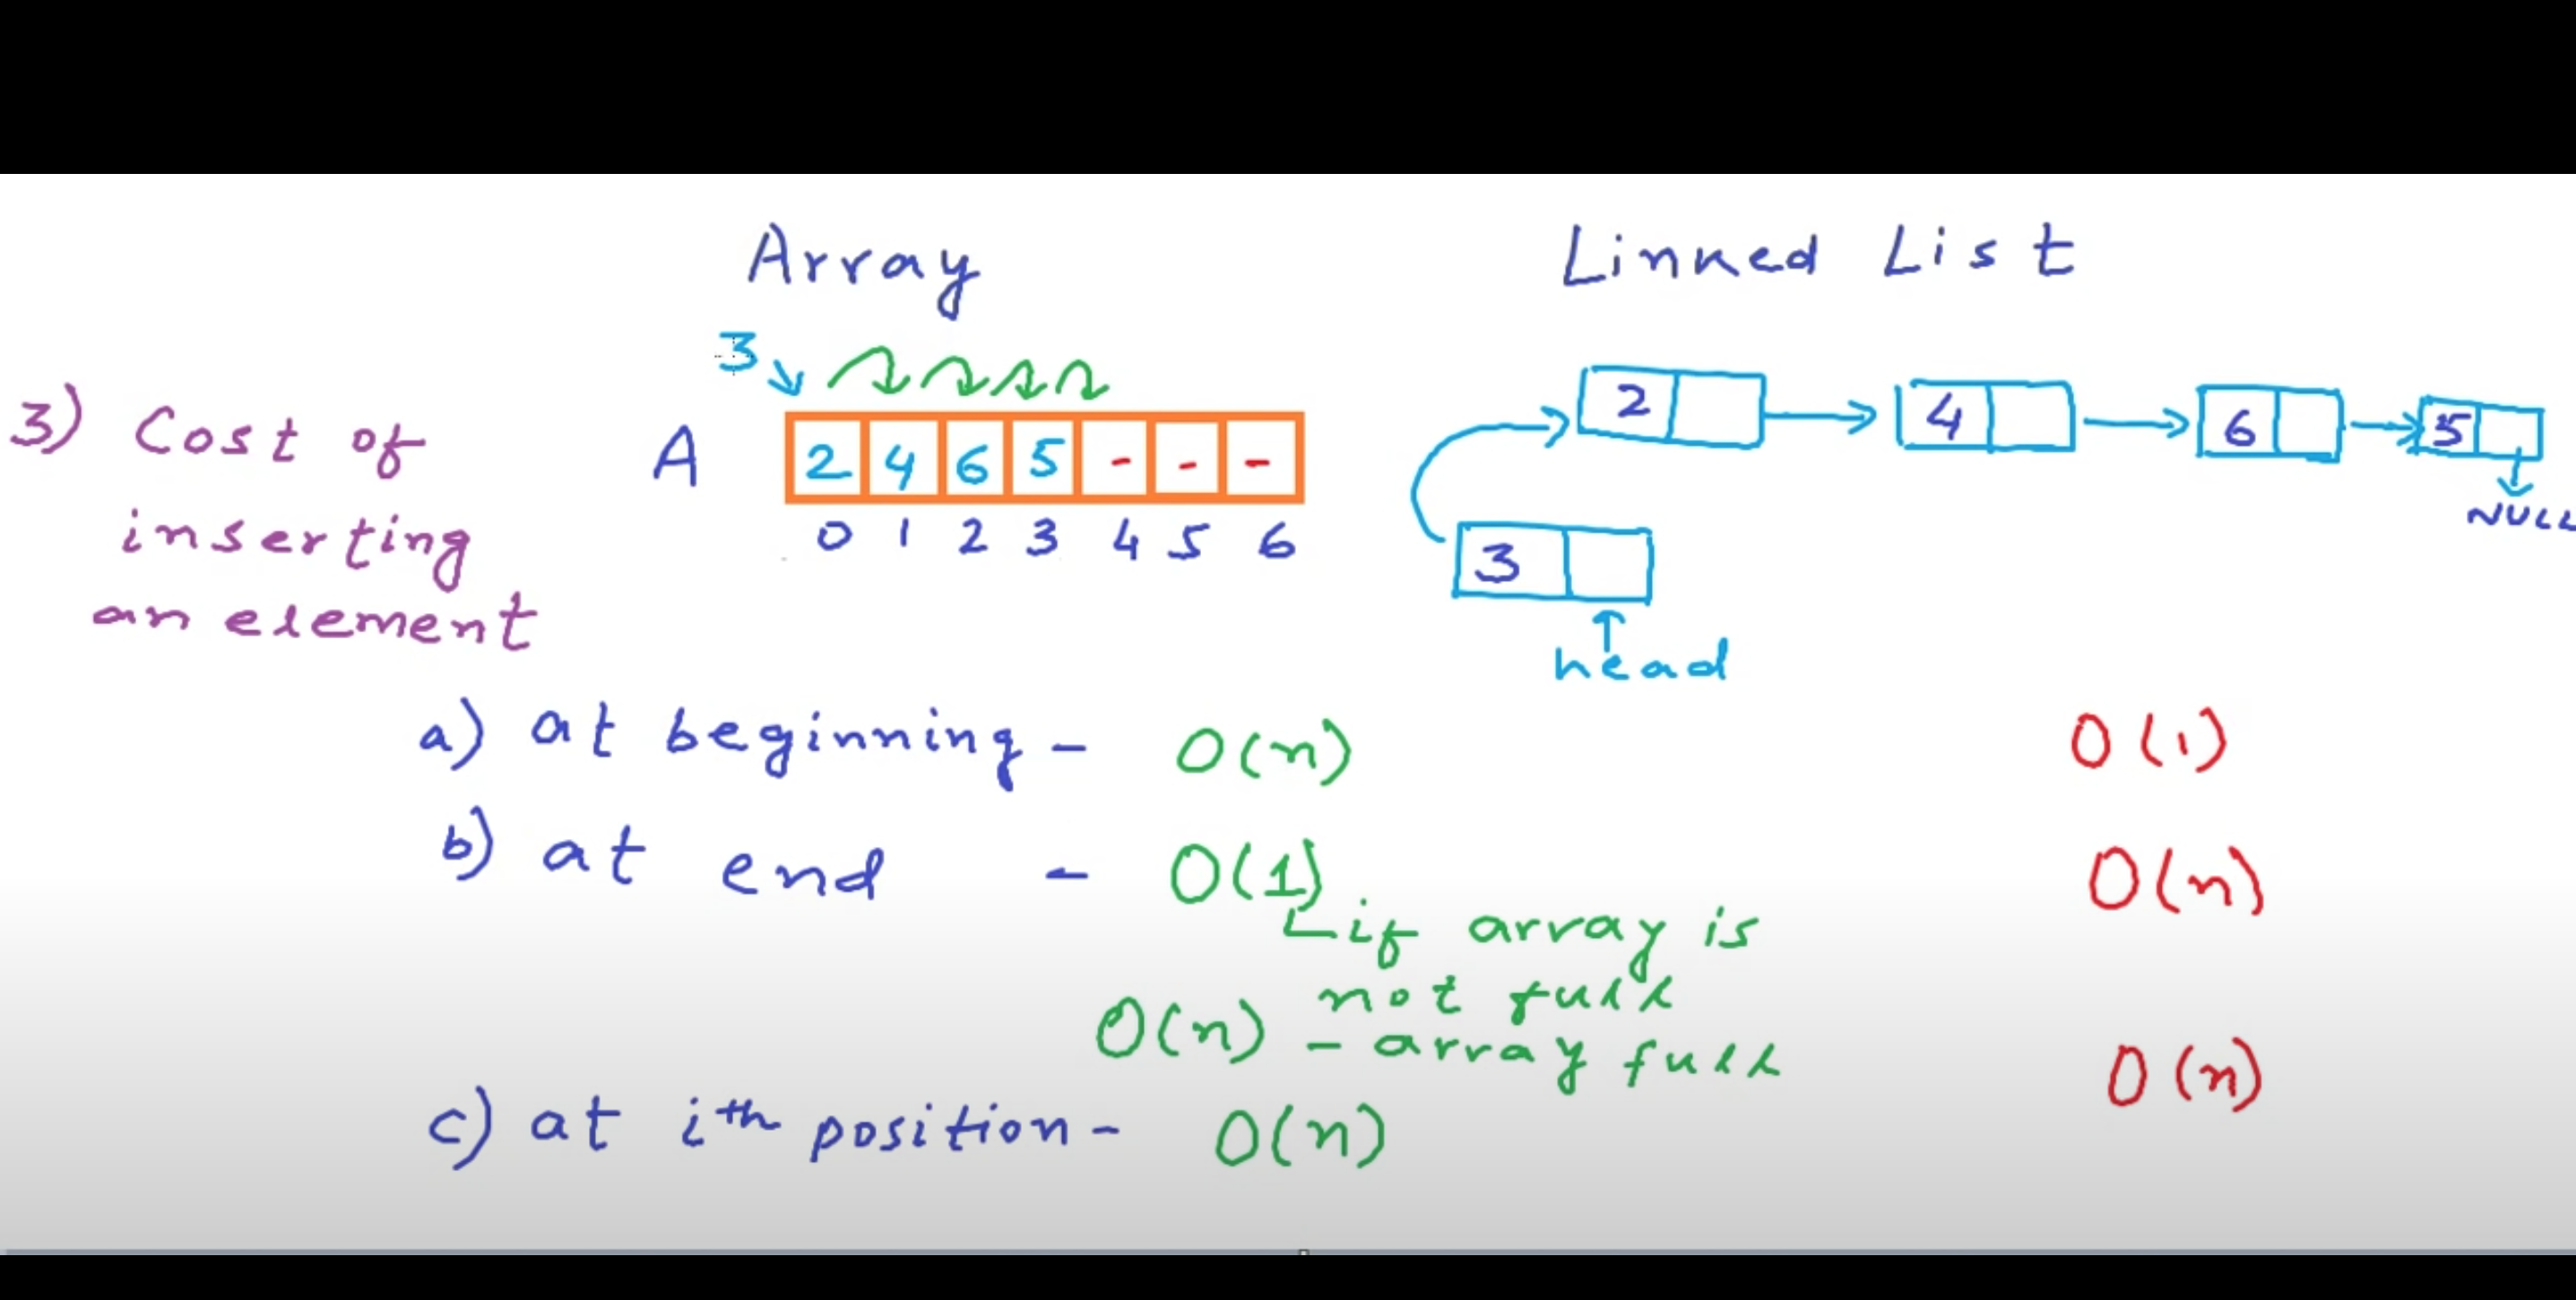 Array Linked List
3
3) Cost of
inserting
an element
A 2 4 6 5 - - -
0 1 2 3 4 5 6
2 4 6 5
NULL
3
head
a) at beginning - O(n) O(1)
b) at end - O(1) O(n)
if array is
not full
O(n) - array full
c) at ith position - O(n) O(n)